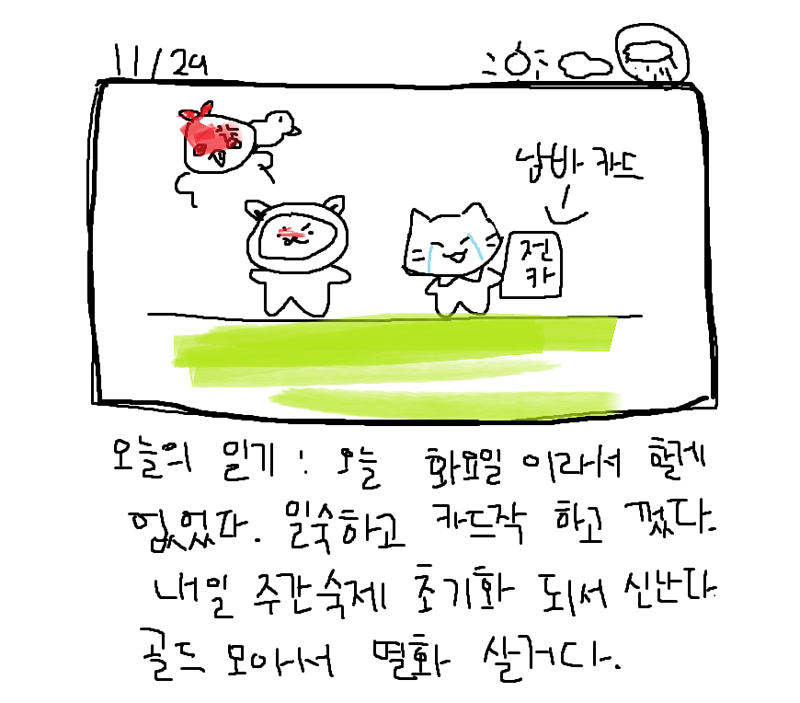 11/29
남바 카드
전
카
오늘의 일기 : 오늘 화요일 이라서 할게
없었다. 일숙하고 카드작 하고 껐다.
내일 주간숙제 초기화 되서 신난다
골드 모아서 멸화 살거다.